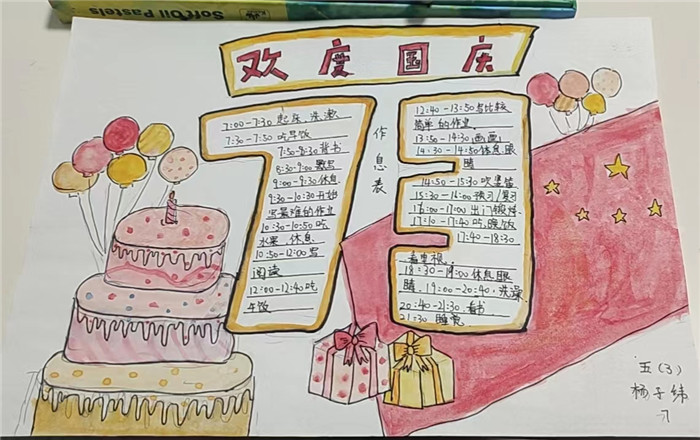 Softoil Pastels
欢度国庆
作息表
7:00-7:30 起床 洗漱
7:30-7:50 吃早饭
7:50-8:30 背书
8:30-9:00
9:00-9:30休息
9:30-10:30开始
写最难的作业
10:30-10:50吃
水果、休息
10:50-12:00写
阅读
12:00-12:40吃
午饭
12:40-13:50写比较
简单的作业
13:50-14:30画画
14:30-14:50休息眼
睛
14:50-15:30吹竖笛
15:30-16:00预习/复习
16:00-17:00出门锻炼
17:10-17:40吃晚饭
17:40-18:30
看电视
18:30-19:00休息眼
睛，19:00-20:40，洗澡
20:40-21:30，看书
21:30 睡觉
五(3)
杨子纬